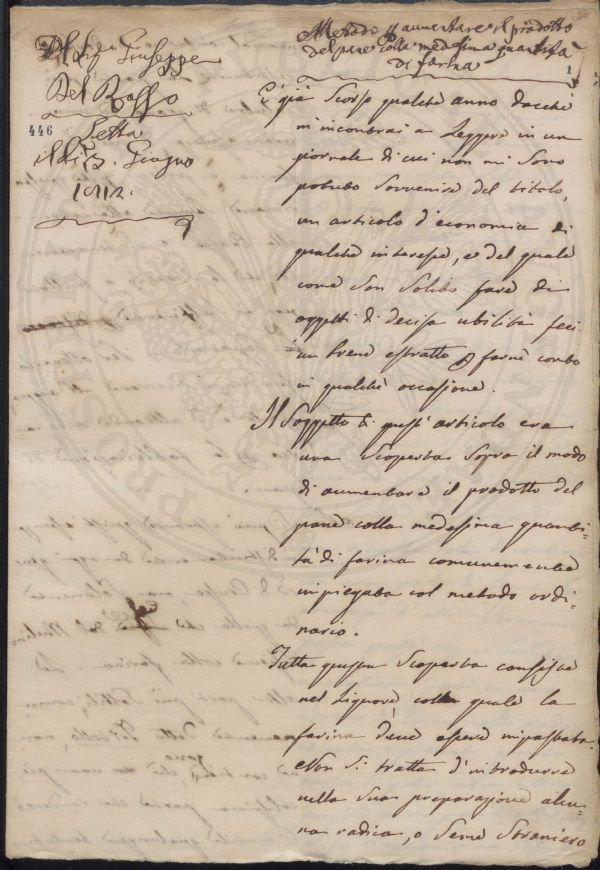 Metodo p aumentare il prodotto
del pane colla medesima quantità
di farina
1
Del Sigr Giuseppe
Del Rosso
446
Letta
il dì 3. Giugno
1812.
E' già scorso qualche anno dacchè
m'incontrai a leggere in un
giornale di cui non mi sono
potuto sovvenire del titolo,
un articolo d'economia di
qualche interesse, e del quale
come son solito fare di
oggetti di decisa utilità feci
un breve estratto p farne conto
in qualche occasione.
Il soggetto di quest'articolo era
una scoperta sopra il modo
di aumentare il prodotto del
pane colla medesima quanti-
tà di farina comunemente
impiegata col metodo ordi-
nario.
Tutta questa scoperta consiste
nel liquore colla quale la
farina deve essere impastata.
Non si tratta d'introdurre
nella sua preparazione alcu-
na radica, o seme straniero